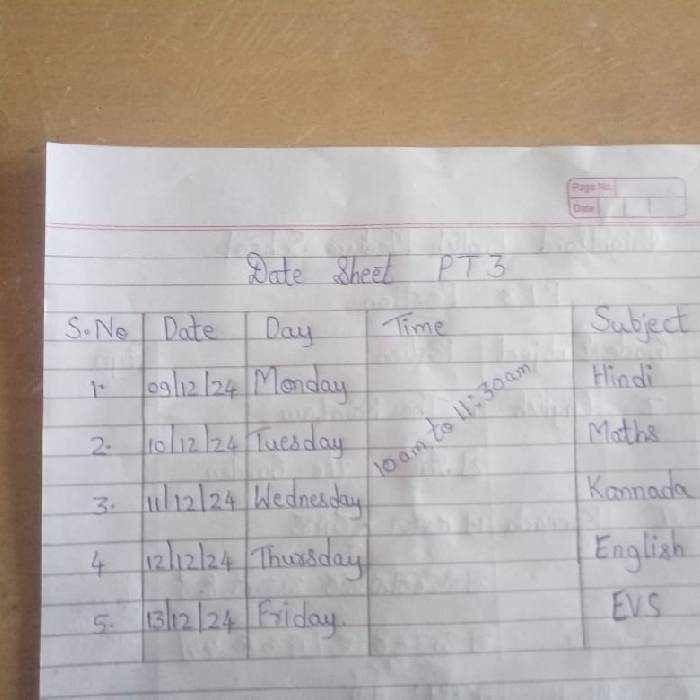 Page No.
Date
Date Sheet PT3
S.No Date Day Time Subject
1. 09/12/24 Monday Hindi
10am to 11:30am
2. 10/12/24 Tuesday Maths
3. 11/12/24 Wednesday Kannada
4 12/12/24 Thursday English
5. 13/12/24 Friday. EVS